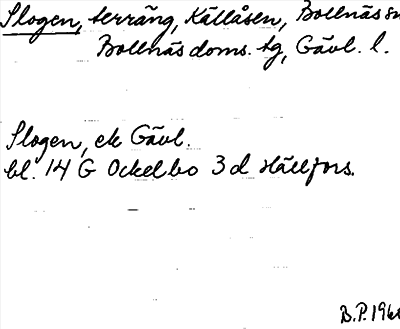 Slogen, terräng, Källåsen, Bollnäs sn
Bollnäs doms. tg, Gävl. l.
Slogen, ek Gävl.
bl. 14 G Ockelbo 3 d Hällfors.
B.P. 196